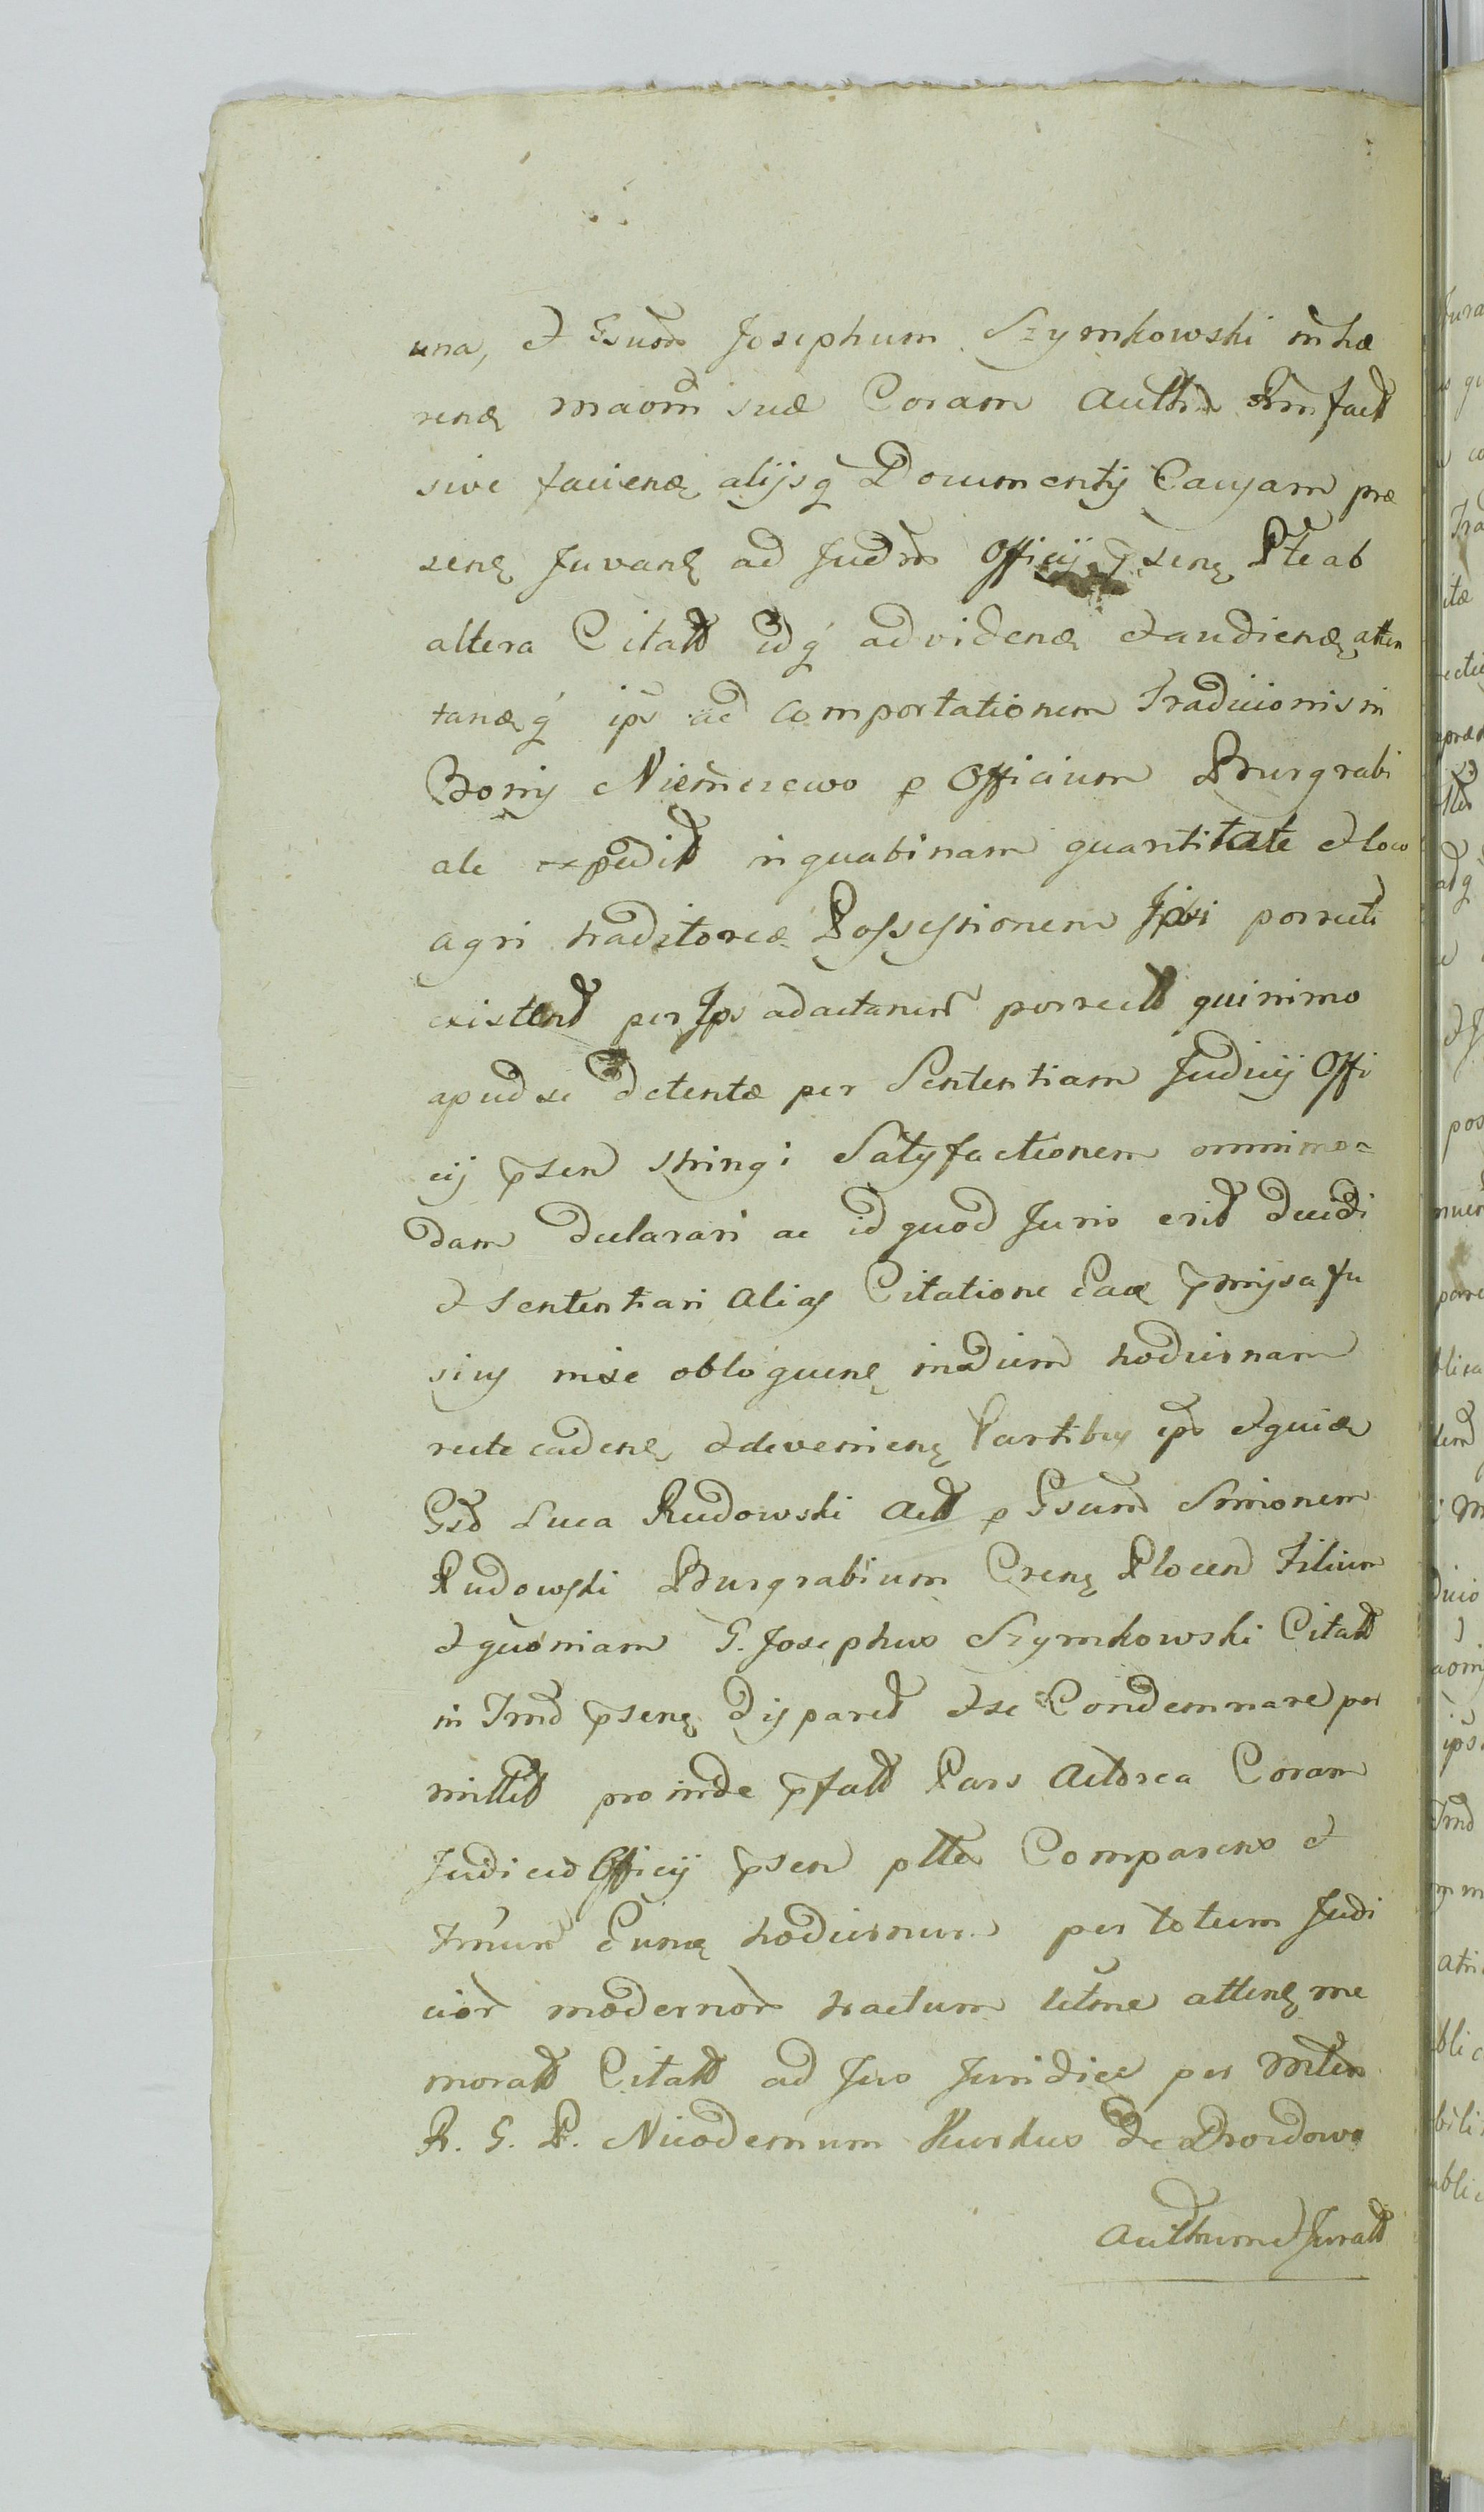 una, et Gsum Josephum Szymkowski in hæ
renę maom suæ Coram Actis Trmfact
sive facienę alijsq́ Documentij Causam præ
senę Juvanę ad Judm Officij p̃senę Pte ab
altera Citatt idq́ ad videnę et audienę atten
tanęq́ ips ad Comportationem Traditionis in
Bonij Niemerzewo p Officium Burgrabi
ale expedit in quabinam quantitate et loco
agri traditoreæ Possessionem Ipsi porrecti
existent per Ips ad actanm porrectt quinimo
apud se detentæ per Sententiam Judicij Offi
cij p̃sen stringi Satysfactionem omnimo=
dam declarari ac id quod Juris erit decidi
et sententiari alias Citatione Eaę p̃missa fu
sius mise obloquenę in diem hodiernam
recte cadenę et devenienę Partibus ips et quidę
Gsd Luca Rudowski Actt p Gsum Simonem
Rudowski Burgrabium Crenę Plocen Filium
et quoniam G. Josephus Szymkowski Citatt
in Trmd p̃senę disparet et se Condemnare per
mittit pro inde p̃fatt Pars Actorea Coram
Judicio Officij p̃sen ptter Comparens et
trmum Eunę hodiernum per totum Judi
cior modernor tractum ultme attenę me
moratt Citatt ad Jus Juridice per Mtem
R. G. P. Nicodemum Kurkus de Drozdowo
Authumet Juratt